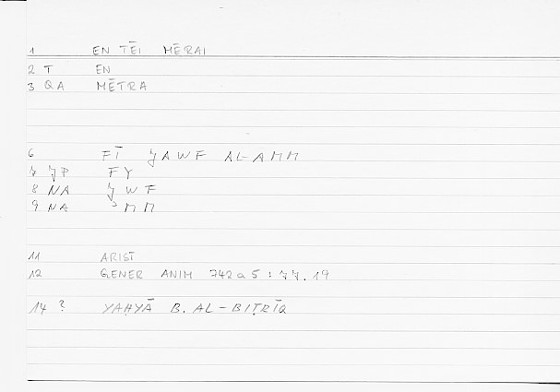 1 EN TĒI MĒRAI
2 T EN
3 QA MĒTRA
6 FĪ ǦAWF AL-AMM
7 ǦP FY
8 NA ǦWF
9 NA ʾMM
11 ARIST
12 GENER ANIM 742a5 : 77.19
14 ? YAḤYĀ B. AL-BIṬRĪQ